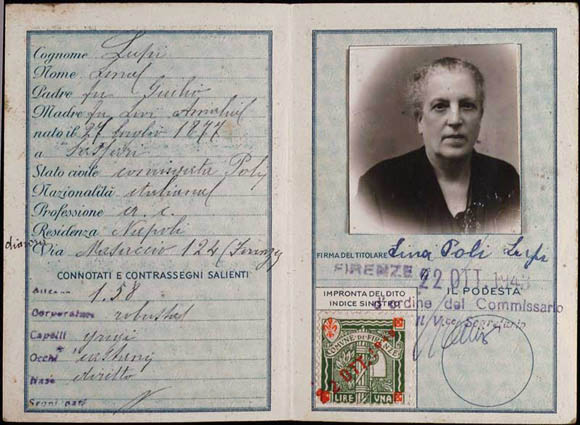 Cognome Lupi
Nome Lina
Padre fu Giulio
Madre fu Levi
nato il 27 luglio 1877
a Sassari
Stato civile coniugata Poli
Nazionalità italiana
Professione a. c.
Residenza Napoli
Via Masaccio 124 (Firenze)
CONNOTATI E CONTRASSEGNI SALIENTI
1.58
Corporatura robusta
Capelli grigi
Occhi castheni
Naso diritto
Segni part.
FIRMA DEL TITOLARE Lina Poli Lupi
FIRENZE 22 OTT. 1943
IMPRONTA DEL DITO
INDICE SINISTRO
IL PODESTÀ
d'ordine del Commissario
Il Vice Segretario
COMUNE·DI·FIRENZE
LIRE UNA